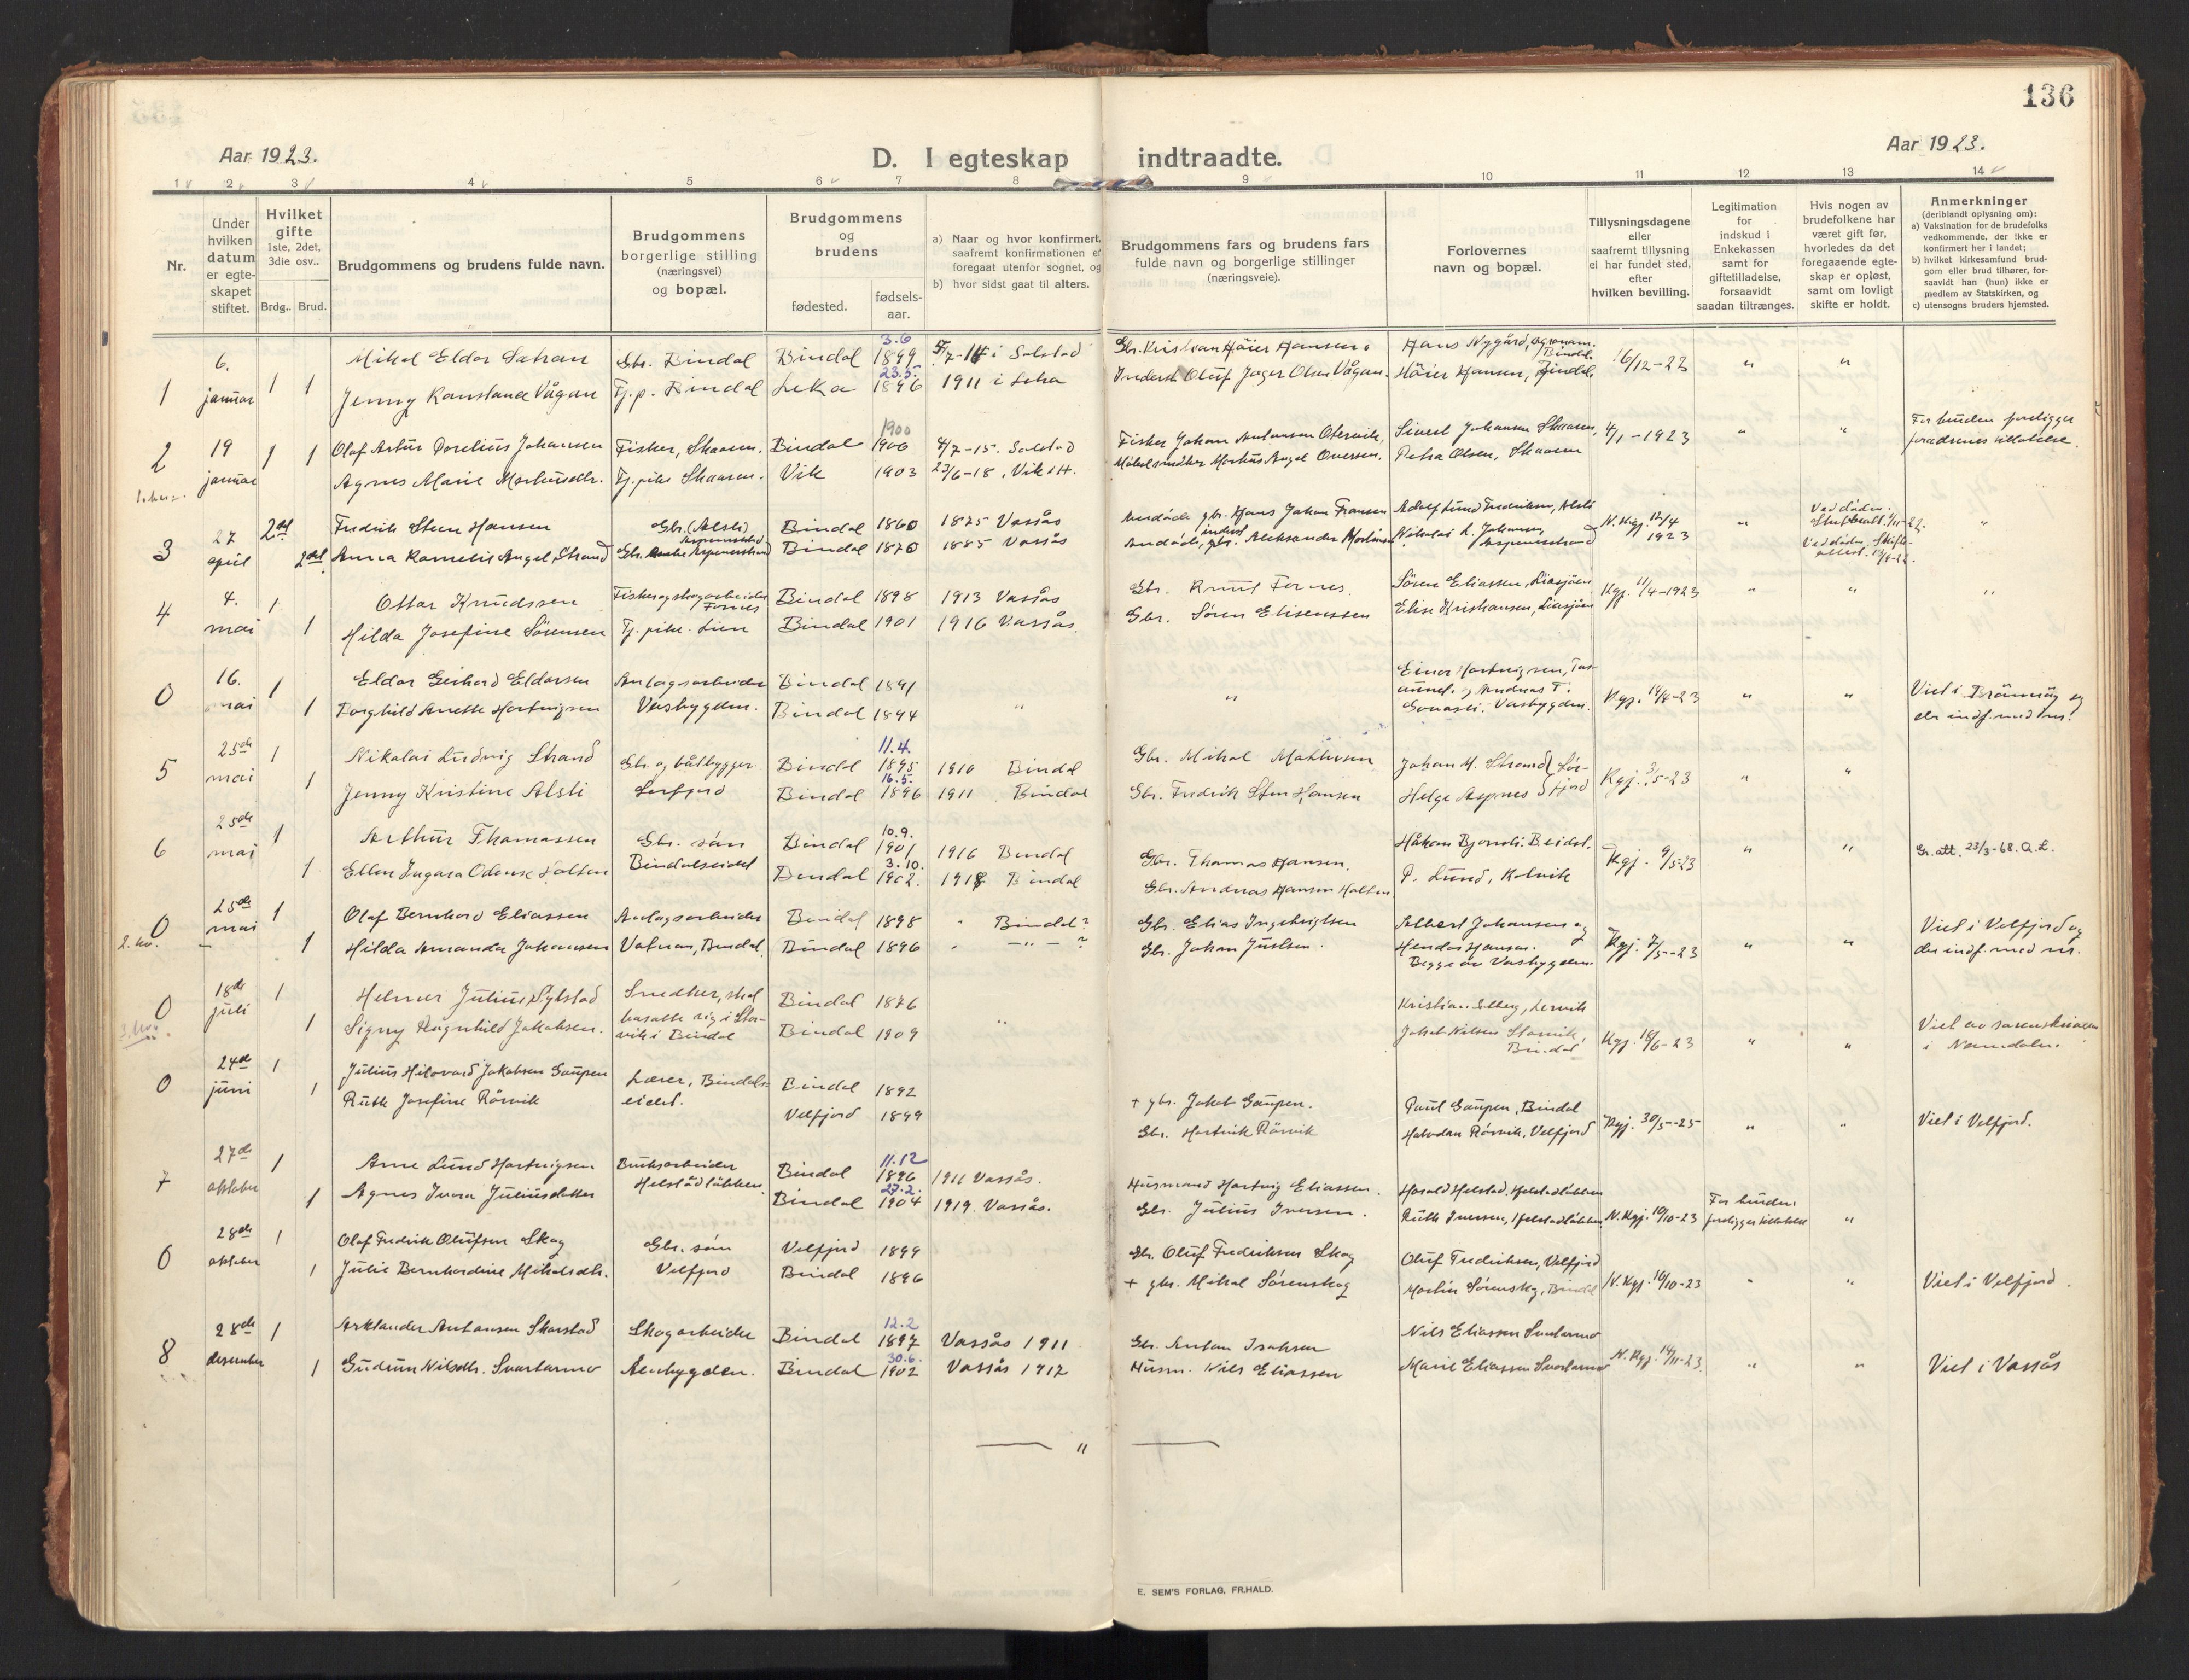 136
Aar 1923.
D. I egteskap indtraadte.
Aar 1923.
1 2 3 4 5 6 7 8 9 10 11 12 13 14
Nr.
Under hvilken datum er egte-skapet stiftet.
Hvilket gifte 1ste, 2det, 3die osv..
Brdg.. Brud.
Brudgommens og brudens fulde navn.
Brudgommens borgerlige stilling (næringsvei) og bopæl.
Brudgommens og brudens
fødested. fødsels-aar.
a) Naar og hvor konfirmert, saafremt konfirmationen er foregaat utenfor sognet, og
b) hvor sidst gaat til alters.
Brudgommens fars og brudens fars fulde navn og borgerlige stillinger (næringsveie).
Forlovernes navn og bopæl.
Tillysningsdagene eller saafremt tillysning ei har fundet sted, efter hvilken bevilling.
Legitimation for indskud i Enkekassen samt for giftetilladelse, forsaavidt saadan tiltrænges.
Hvis nogen av brudefolkene har været gift før, hvorledes da det foregaaende egte-skap er opløst, samt om lovligt skifte er holdt.
Anmerkninger (deriblandt oplysning om):
a) Vaksination for de brudefolks vedkommende, der ikke er konfirmert her i landet;
b) hvilket kirkesamfund brud-gom eller brud tilhører, for-saavidt han (hun) ikke er medlem av Statskirken, og
c) utensogns bruders hjemsted.
3.6
6. 1 Mikal Eldor Gbr. Bindal Bindal 1899 i Solstad Gbr. Kristian Höier Hansen Hans Nygård, agronom. Bindal. 6/12-22 " "
23.5.
1 januar 1 Jenny Konstanse Vågan Tj.p. Bindal Leka 1896 1911 i Leka Oluf Jager Olsen Vågan. Höier Hansen, Bindal.
1900
2 19 januar 1 1 Olaf Artur Dorelius Johansen Fisker, Skaaren. Bindal 1900 4/7-15. Solstad Fisker Johan Antonsen Otervik, Sivert Johansen Skaaren, 4/1-1923 " " For bruden foreligger
Agnes Marie Tj. pike Skaaren. Vik 1903 23/6-18, Vik i H. Petra Olsen, Skaaren forældrenes tillatelse.
3 27 april 2det Fredrik Steen Hansen Gbr. (Alsli) Bindal 1860 1875 Vassås gbr. Hans Johan Fransen Adolf Lund Fredriksen, Alsli N. Kgj. 12/4 1923 " Ved döden. "
2det Anna Kornelie Angel Strand Bindal 1870 1885 Vassås Aleksander Nikolai L. Johansen Ved döden.
4 4. mai 1 Ottar Knudssen Fisker og skogarbeider Fornes Bindal 1898 1913 Vassås Gbr. Knut Fornes. Sören Eliassen, Liasjöen Kgj. 11/4-1923 " " "
1 Hilda Josefine Sörensen Tj. pike. Lien Bindal 1901 1916 Vassås. Gbr. Sören Elise Kristiansen, Liasjöen
0 16. mai 1 Eldor Gerhard Eldorsen Anlagsarbeider Bindal 1891 " " Einar Hartvigsen, og Andreas T. Kgj. 14/4-23 " " Viet i Brönnöy og
1 Torghild Anette Hartvigsen Vasbygden. Bindal 1894 Vasbygden. der indf. med nr.
11.4.
5 25de mai 1 Nikolai Ludvig Strand Gbr. og båtbygger Bindal 1895 1910 Bindal Gbr. Mikal Mathisen Johan M. Strand Sör- Kgj. 3/5-23 " "
16.5.
1 Jenny Kristine Alsli Sörfjord Bindal 1896 1911 Bindal Gbr. Fredrik Sten Hansen Helge Aspnes fjord
10.9.
6 25de mai 1 Arthur Thomassen Gbr. sön Bindal 1901 1916 Bindal Gbr. Thomas Hansen. Håkon Kgj. 9/5-23 " " Gr. att. 23/3-62. O.L.
3.10.
1 Ellen Ingara Odensk Holten Bindalseidet Bindal 1902. 1918 Bindal Gbr. Andreas Hansen Holten P. Lund, Kolvik
0 25de mai 1 Olaf Bernhard Eliassen Anlagsarbeider Bindal 1898 " Bindal? Gbr. Elias Ingebrigtsen Albert Johansen og Kgj. 7/5-23 " " Viet i Velfjord og
1 Hilda Amanda Johansen Vatnan, Bindal. Bindal 1896 " —"— ? Gbr. Johan Justsen. Hansen. Begge av Vasbygden. der indf. med nr.
0 18de juli 1 Helmer Julius Sylstad Snedker, skal Bindal 1876 " Kristian Elberg, Lervik Viet av sorenskriveren
1 Signy Ragnhild Jakobsen. bosatte sig i Stor-vik i Bindal Bindal 1909 Jakob Nilsen Storvik, Bindal Kgj. 18/6-23 " " i Namdalen.
0 24de juni 1 Julius Hilovard Jakobsen Gaupen Lærer, Bindals- Bindal 1892 + gbr. Jakob Gaupen. Paul Gaupen, Bindal
1 Ruth Josefine Rörvik eidet. Velfjord 1899 Gbr. Hartvik Rörvik Halvdan Rörvik, Velfjord Kgj. 30/5-25 " " Viet i Velfjord.
11.12
7 27de oktober 1 Arne Lund Hartvigsen Bruksarbeider Bindal 1896 1911 Vassås. Husmand Hartvig Eliassen. Harald Helstad, Helstadløkken For bruden
27.2.
1 Agnes Ivara Juliusdatter Helstadløkken. Bindal 1904 1919. Vassås. Gbr. Julius Iversen. Ruth Iversen, Helstadløkken N. Kgj. 10/10-23 foreligger tillatelse "
0 28de oktober 1 Olaf Fredrik Olufsen Skog Gbr. sön Velfjord 1899 Gbr. Oluf Fredriksen Skog Oluf Fredriksen, Velfjord
1 Julie Bernhardine Mikalsdtr. Velfjord Bindal 1896 + gbr. Mikal Sörenskog Martin Sörenskog, Bindal N. Kgj. 16/10-23 " " Viet i Velfjord.
12.2
8 28de desember 1 Arklander Antonsen Skarstad Skogarbeider Bindal 1897 Vassås 1911 Gbr. Antom Isaksen Nils Eliassen Svartarmo
30.6.
1 Gudrun Nilsdtr. Svartarmo Aabygden. Bindal 1902 Vassås 1917 Husm. Nils Eliassen Marie Eliassen Svartarmo N. Kgj. 14/11-23. " " Viet i Vassås
— " —
E. SEM'S FORLAG, FR.HALD.